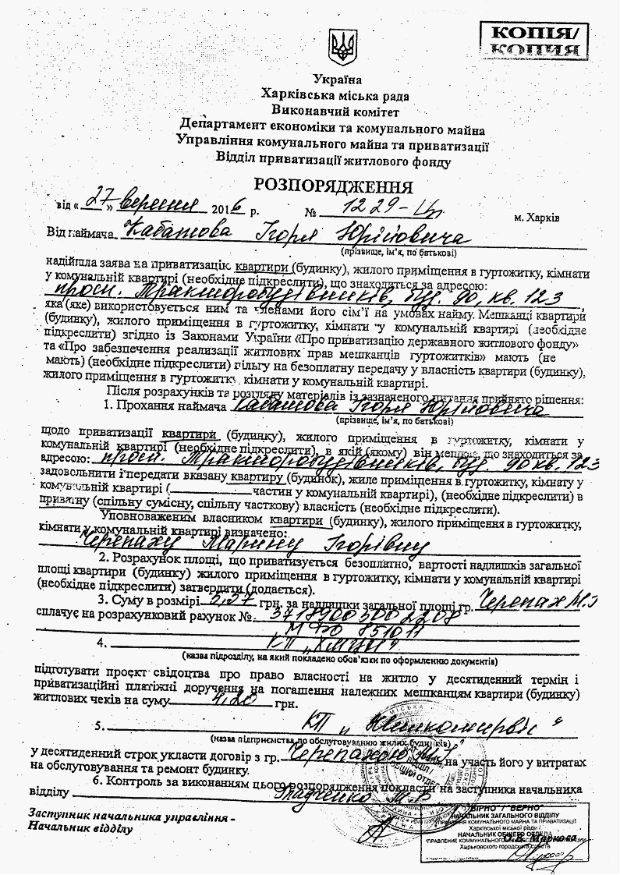 КОПІЯ/
КОПИЯ
Україна
Харківська міська рада
Виконавчий комітет
Департамент економіки та комунального майна
Управління комунального майна та приватизації
Відділ приватизації житлового фонду
РОЗПОРЯДЖЕННЯ
від « 27 » вересня 2016 р. № 1229- м. Харків
Від наймача Кабатова Ігоря Юрійовича
(прізвище, ім'я, по батькові)
надійшла заява на приватизацію квартири (будинку), жилого приміщення в гуртожитку, кімнати
у комунальній квартирі (необхідне підкреслити), що знаходиться за адресою:
просп. Тракторобудівників, буд. 90, кв. 123,
яка (яке) використовується ним та членами його сім'ї на умовах найму. Мешканці квартири
(будинку), жилого приміщення в гуртожитку, кімнати у комунальній квартирі (необхідне
підкреслити) згідно із Законами України «Про приватизацію державного житлового фонду»
та «Про забезпечення реалізації житлових прав мешканців гуртожитків» мають (не
мають) (необхідне підкреслити) пільгу на безоплатну передачу у власність квартири (будинку),
жилого приміщення в гуртожитку, кімнати у комунальній квартирі.
Після розрахунків та розгляду матеріалів із зазначеного питання прийнято рішення:
1. Прохання наймача Кабатова Ігоря Юрійовича
(прізвище, ім'я, по батькові)
щодо приватизації квартири (будинку), жилого приміщення в гуртожитку, кімнати у
комунальній квартирі (необхідне підкреслити), в якій (якому) він мешкає, що знаходиться за
адресою: просп. Тракторобудівників, буд. 90 кв. 123
задовольнити і передати вказану квартиру (будинок), жиле приміщення в гуртожитку, кімнату у
комунальній квартирі (________ частин у комунальній квартирі), (необхідне підкреслити) в
приватну (спільну сумісну, спільну часткову) власність (необхідне підкреслити).
Уповноваженим власником квартири (будинку), жилого приміщення в гуртожитку,
кімнати у комунальній квартирі визначено:
Черепаху Марину Ігорівну
2. Розрахунок площі, що приватизується безоплатно, вартості надлишків загальної
площі квартири (будинку) жилого приміщення в гуртожитку, кімнати у комунальній квартирі
(необхідне підкреслити) затвердити (додається).
3. Суму в розмірі грн. за надлишки загальної площі гр. Черепах М.І
сплачує на розрахунковий рахунок №
МФО 851011
4. КП
(назва підрозділу, на який покладено обов'язки по оформленню документів)
підготувати проєкт свідоцтва про право власності на житло у десятиденний термін і
приватизаційні платіжні доручення на погашення належних мешканцям квартири (будинку)
житлових чеків на суму 4,20 грн.
5. КП „Жилкомсервіс"
(назва підприємства по обслуговуванню жилих будинків)
у десятиденний строк укласти договір з гр. Черепахою М.І. на участь його у витратах
на обслуговування та ремонт будинку.
6. Контроль за виконанням цього розпорядження покласти на заступника начальника
відділу
Заступник начальника управління -
Начальник відділу
"ВІРНО"/"ВЕРНО"
НАЧАЛЬНИК ЗАГАЛЬНОГО ВІДДІЛУ
УПРАВЛІННЯ КОМУНАЛЬНОГО МАЙНА ТА ПРИВАТИЗАЦІЇ
Харківської міської ради /
НАЧАЛЬНИК ОБЩЕГО ОТДЕЛА
УПРАВЛЕНИЕ КОММУНАЛЬНОГО ИМУЩЕСТВА И ПРИВАТИЗАЦИИ
Харьковского городского совета
О.В. Маркова